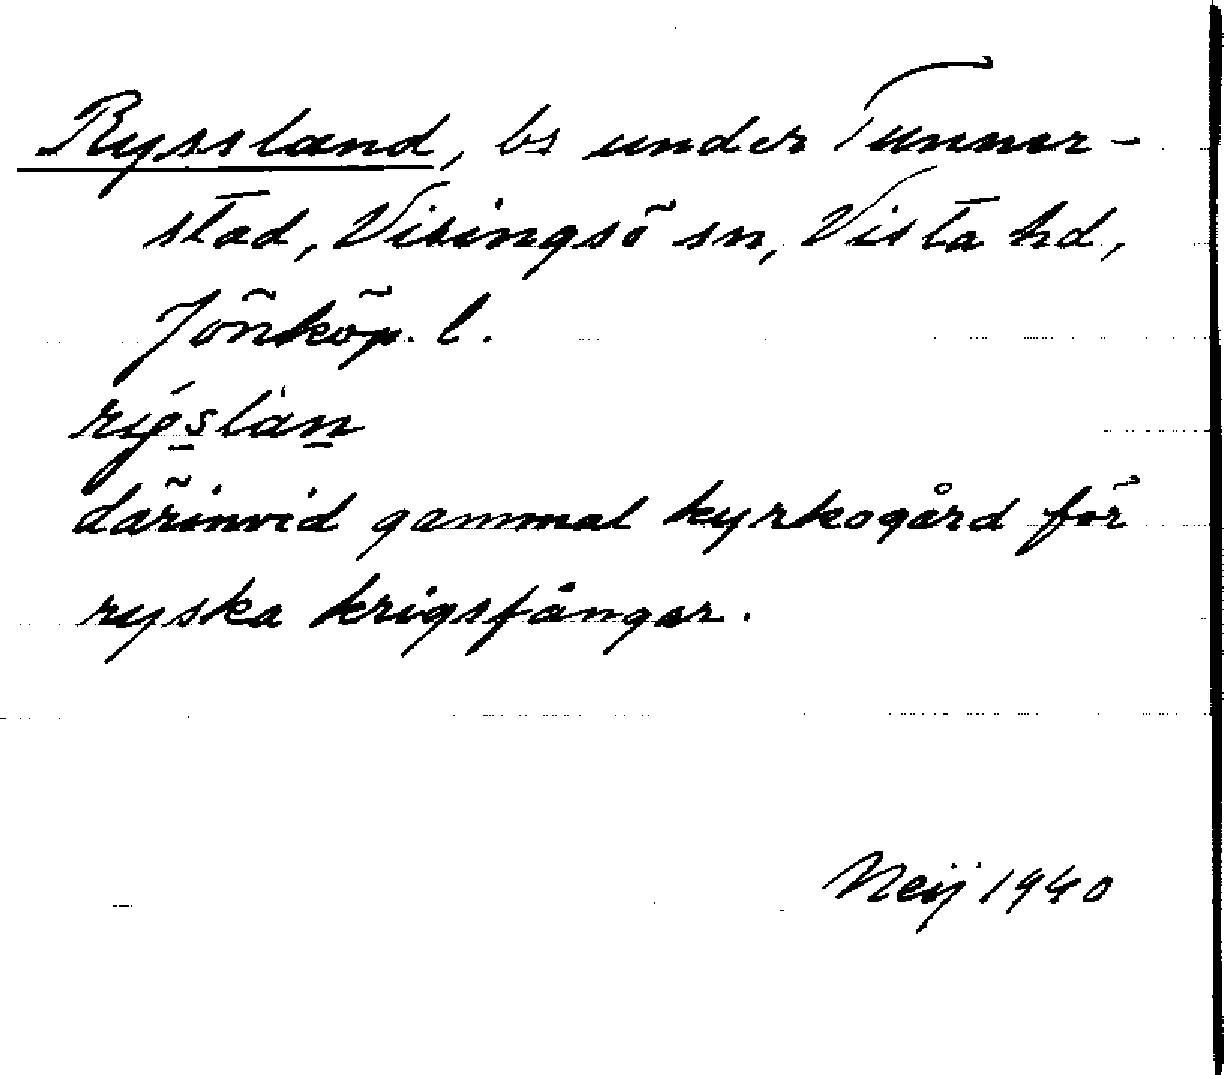 Ryssland, bs under Tunner-
stad, Visingsö sn, Vista hd,
Jönköp. l.
därinvid gammal kyrkogård för
ryska krigsfångar.
Neij 1940